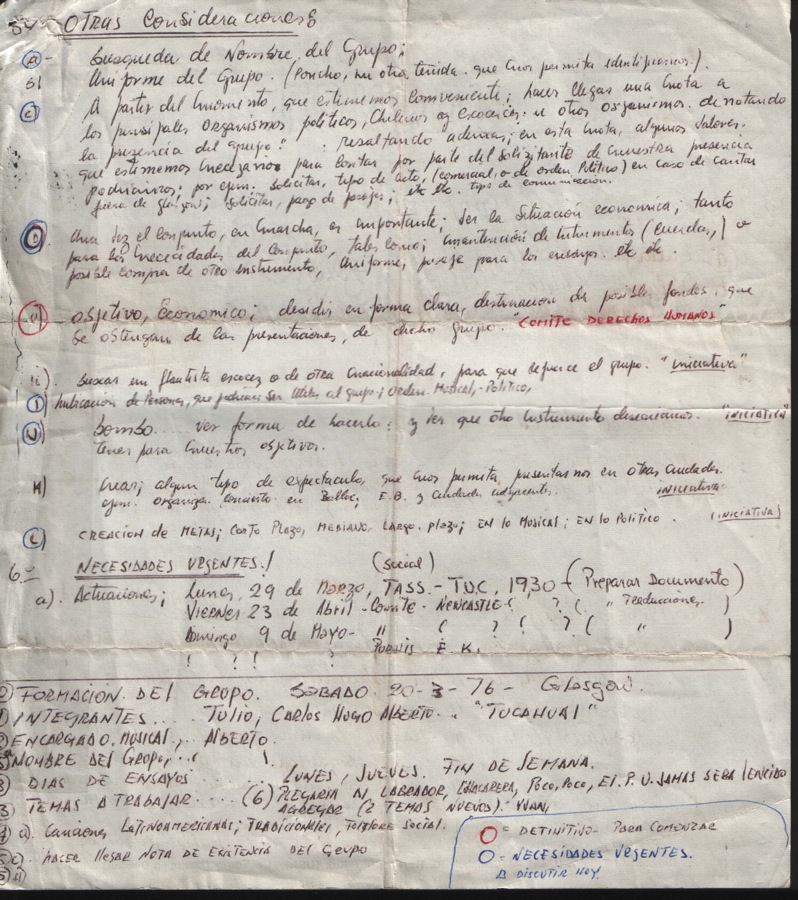 5º OTRAS Consideraciones
a)- busqueda de Nombre del Grupo;
b) Uniforme del Grupo. (Poncho, u otra tenida que nos permita identificarnos).
c) A partir del momento, que estimemos conveniente; hacer llegar una nota a
los principales organismos politicos, Chilenos y escoceses u otros organismos. denotando
la presencia del grupo. resaltando ademas; en esta nota, algunos valores.
que estimemos necesarios para contar por parte del solicitante de nuestra presencia
podriamos; por ejem. solicitar, tipo de acto, (comercial, o de orden Politico) en caso de cantar
fuera de glasgow; solicitar, pago de pasajes; etc etc. tipo de comunicacion.
D) Una vez el conjunto, en marcha, es importante; ver la Situación economica; tanto
para las necesidades del Conjunto, tales como; mantención de instrumentos (cuerdas,) o
posible compra de otro instrumento, Uniforme, pasaje para los ensayos. etc etc.
objetivo, Economico; decidir en forma clara, destinacion de posible fondos, que
se obtengan de las presentaciones, de dicho grupo. "COMITE DERECHOS HUMANOS"
buscar un flautista escoces o de otra nacionalidad, para que refuerce el grupo. "iniciativa"
Personas, que podrian ser Utiles al grupo; Orden. Musical,-Politico,
bombo.... ver forma de hacerlo; y ver que otro instrumento desearíamos. "INICIATIVA"
tener para nuestros objetivos.
K) Crear; algun tipo de espectaculo, que nos permita presentarnos en otras ciudades.
ejm. organizar concierto en E.B. y ciudades adyacentes. INICIATIVA.
L) CREACION de METAS; CORTO PLAZO, MEDIANO, LARGO, plazo; EN lo MUSICAL; EN lo POLITICO. (INICIATIVA)
6º NECESIDADES URGENTES! (social)
a). Actuaciones; Lunes, 29 de MARZO, TASS.- TUC, 1930 - (Preparar Documento)
VIERNES 23 de Abril - Comite - NEWCASTLE ( ? ( " Traducciones. )
Domingo 9 de Mayo- " ( ? ( ? ( " )
E.K.
¡ ? ! ?
FORMACION DEL GRUPO. SABADO 20-3-76 - Glasgow.
1) INTEGRANTES... TULIO, CARLOS HUGO ALBERTO.. "TUCAHUAL"
2) ENCARGADO MUSICAL,.. ALBERTO.
NOMBRE DEL GRUPO,..(
3) DIAS DE ENSAYOS ....... LUNES, JUEVES. FIN DE SEMANA.
3 TEMAS A TRABAJAR.... (6) PLEGARIA A LABRADOR, CHACARERA, POCO, POCO, EL P. U. JAMAS SERA VENCIDO
AGREGAR (2 TEMAS NUEVOS).
a). Canciones, LATINOAMERICANAS; TRADICIONALES, FOLKLORE SOCIAL.
c). HACER llegar NOTA DE EXISTENCIA DEL GRUPO
O = DEFINITIVO PARA COMENZAR
O = NECESIDADES URGENTES.
A DISCUTIR HOY!